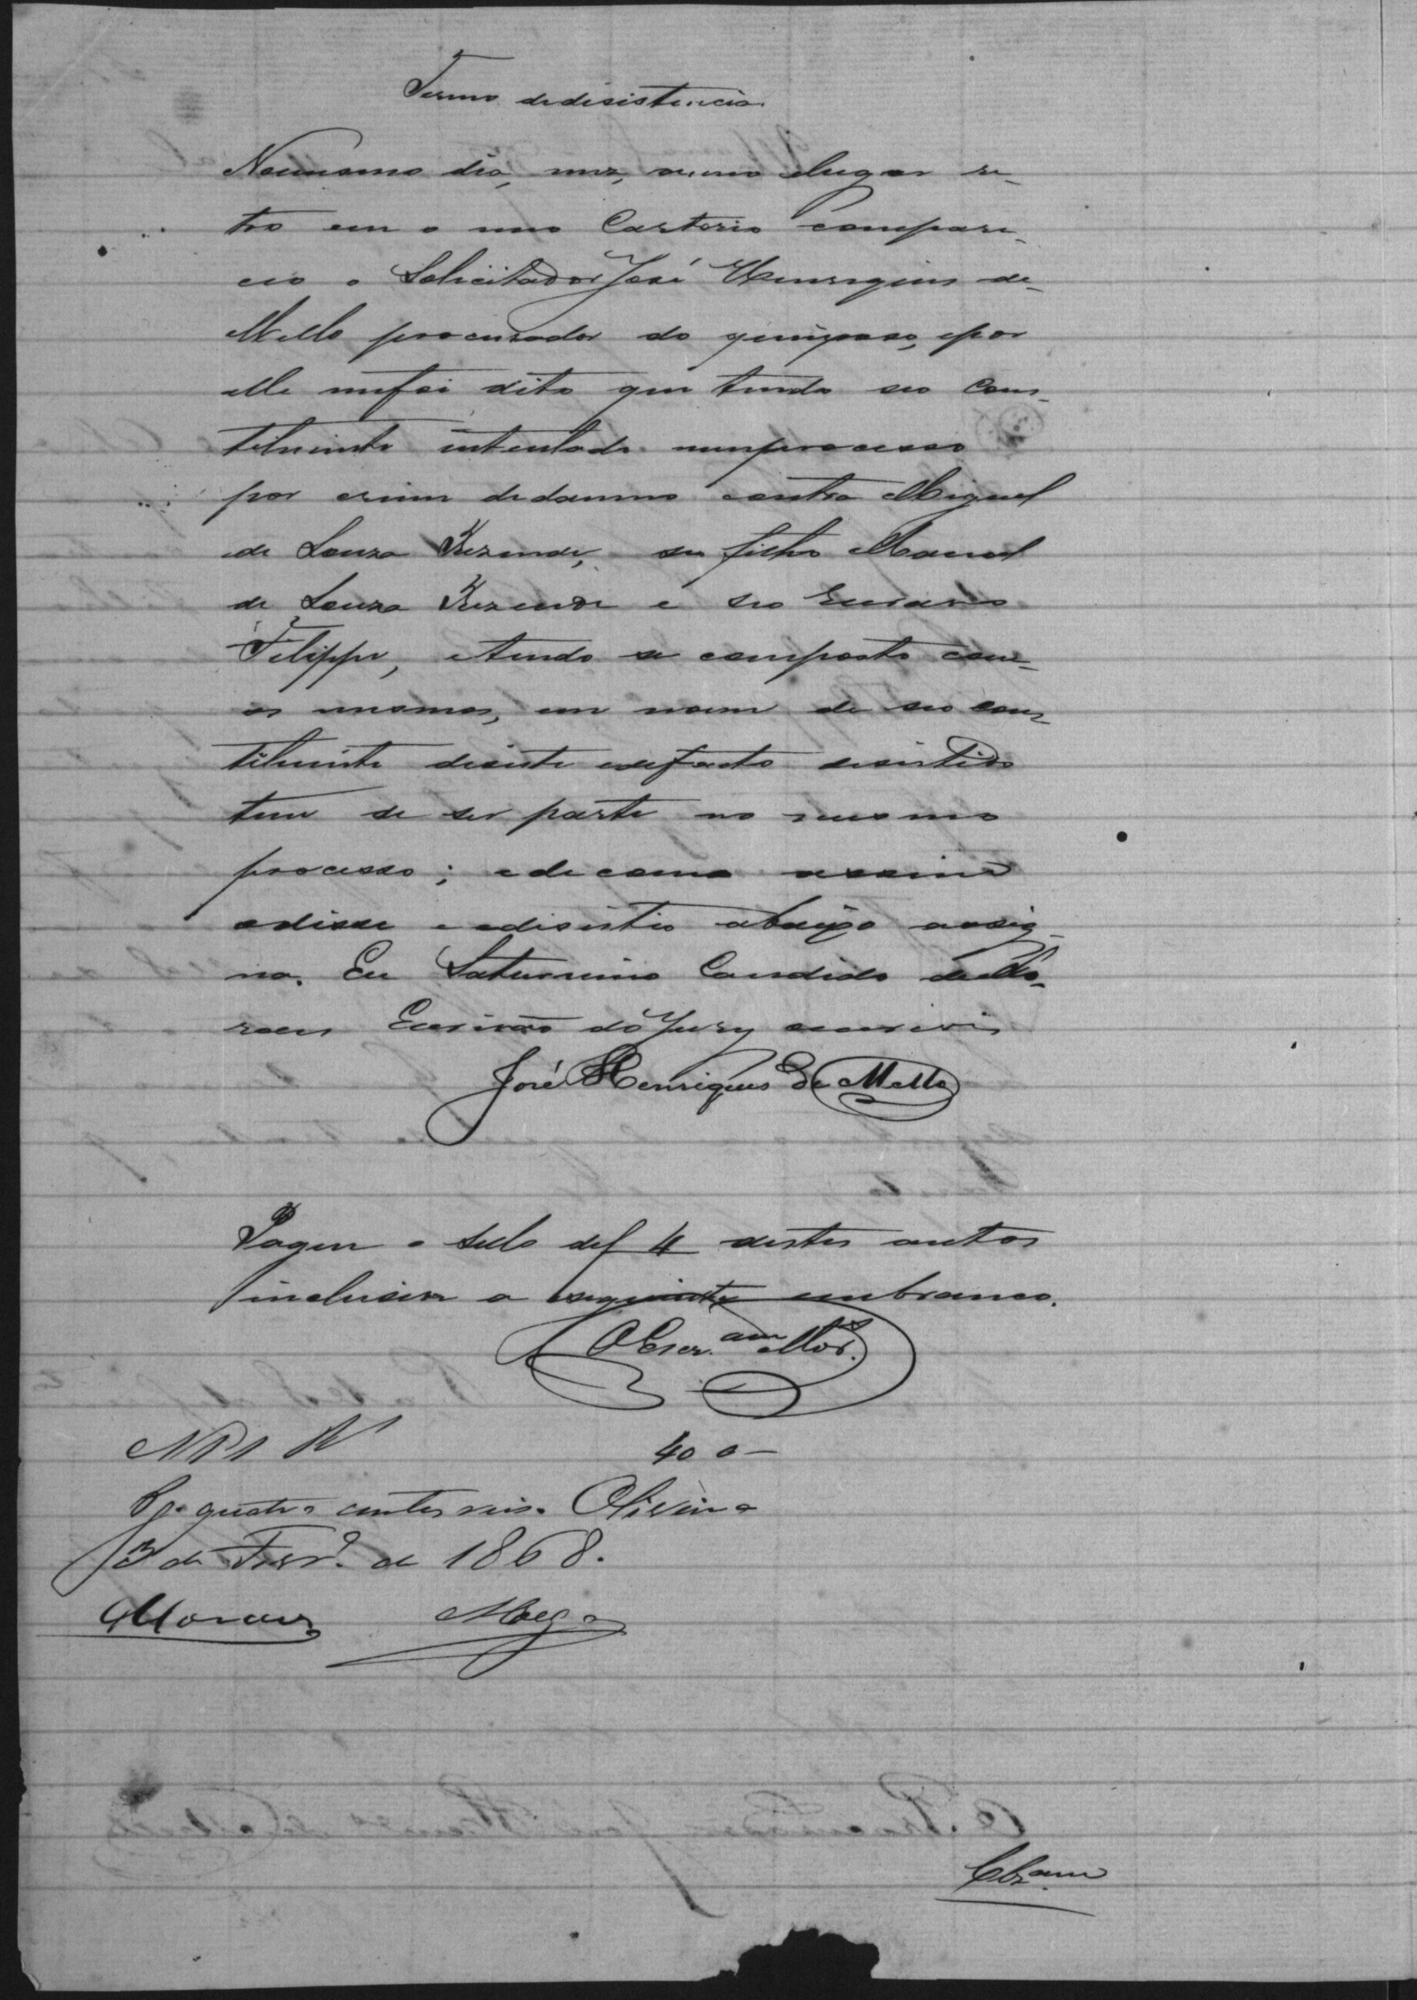 Termo dedisistencia.
Nomesmo dia, mez, anno elugar re-
tro em o meo Cartorio compare-
ceo o Solicitador José Henriques de
Mello procurador do queixoso, epor
elle mefoi dito que tendo seo cons-
tituinte intentado umprocesso
por crime dedamno contra Miguel
de Souza Rezende, seu filho Manoel
de Souza Rezende e seo escravo
Filippe, etendo se composto com
os mesmos, em nome de seo cons-
tituinte desiste edefacto desistido
tem de ser parte no mesmo
processo; e de como assim
odisse e odisistio abaixo assig-
na. Eu Saturnino Candido deMo-
raes Escrivão do Jury escrevi
José Henriques de Mello
Pagou o sello def 4 destes autos
inclusive a seguinte embranco.
O Escr.am Mor.
N 1 R 400
Pg. quatro centos reis. Oliveira
13 de Fevr.o de 1868.
Moraes
Clz.am